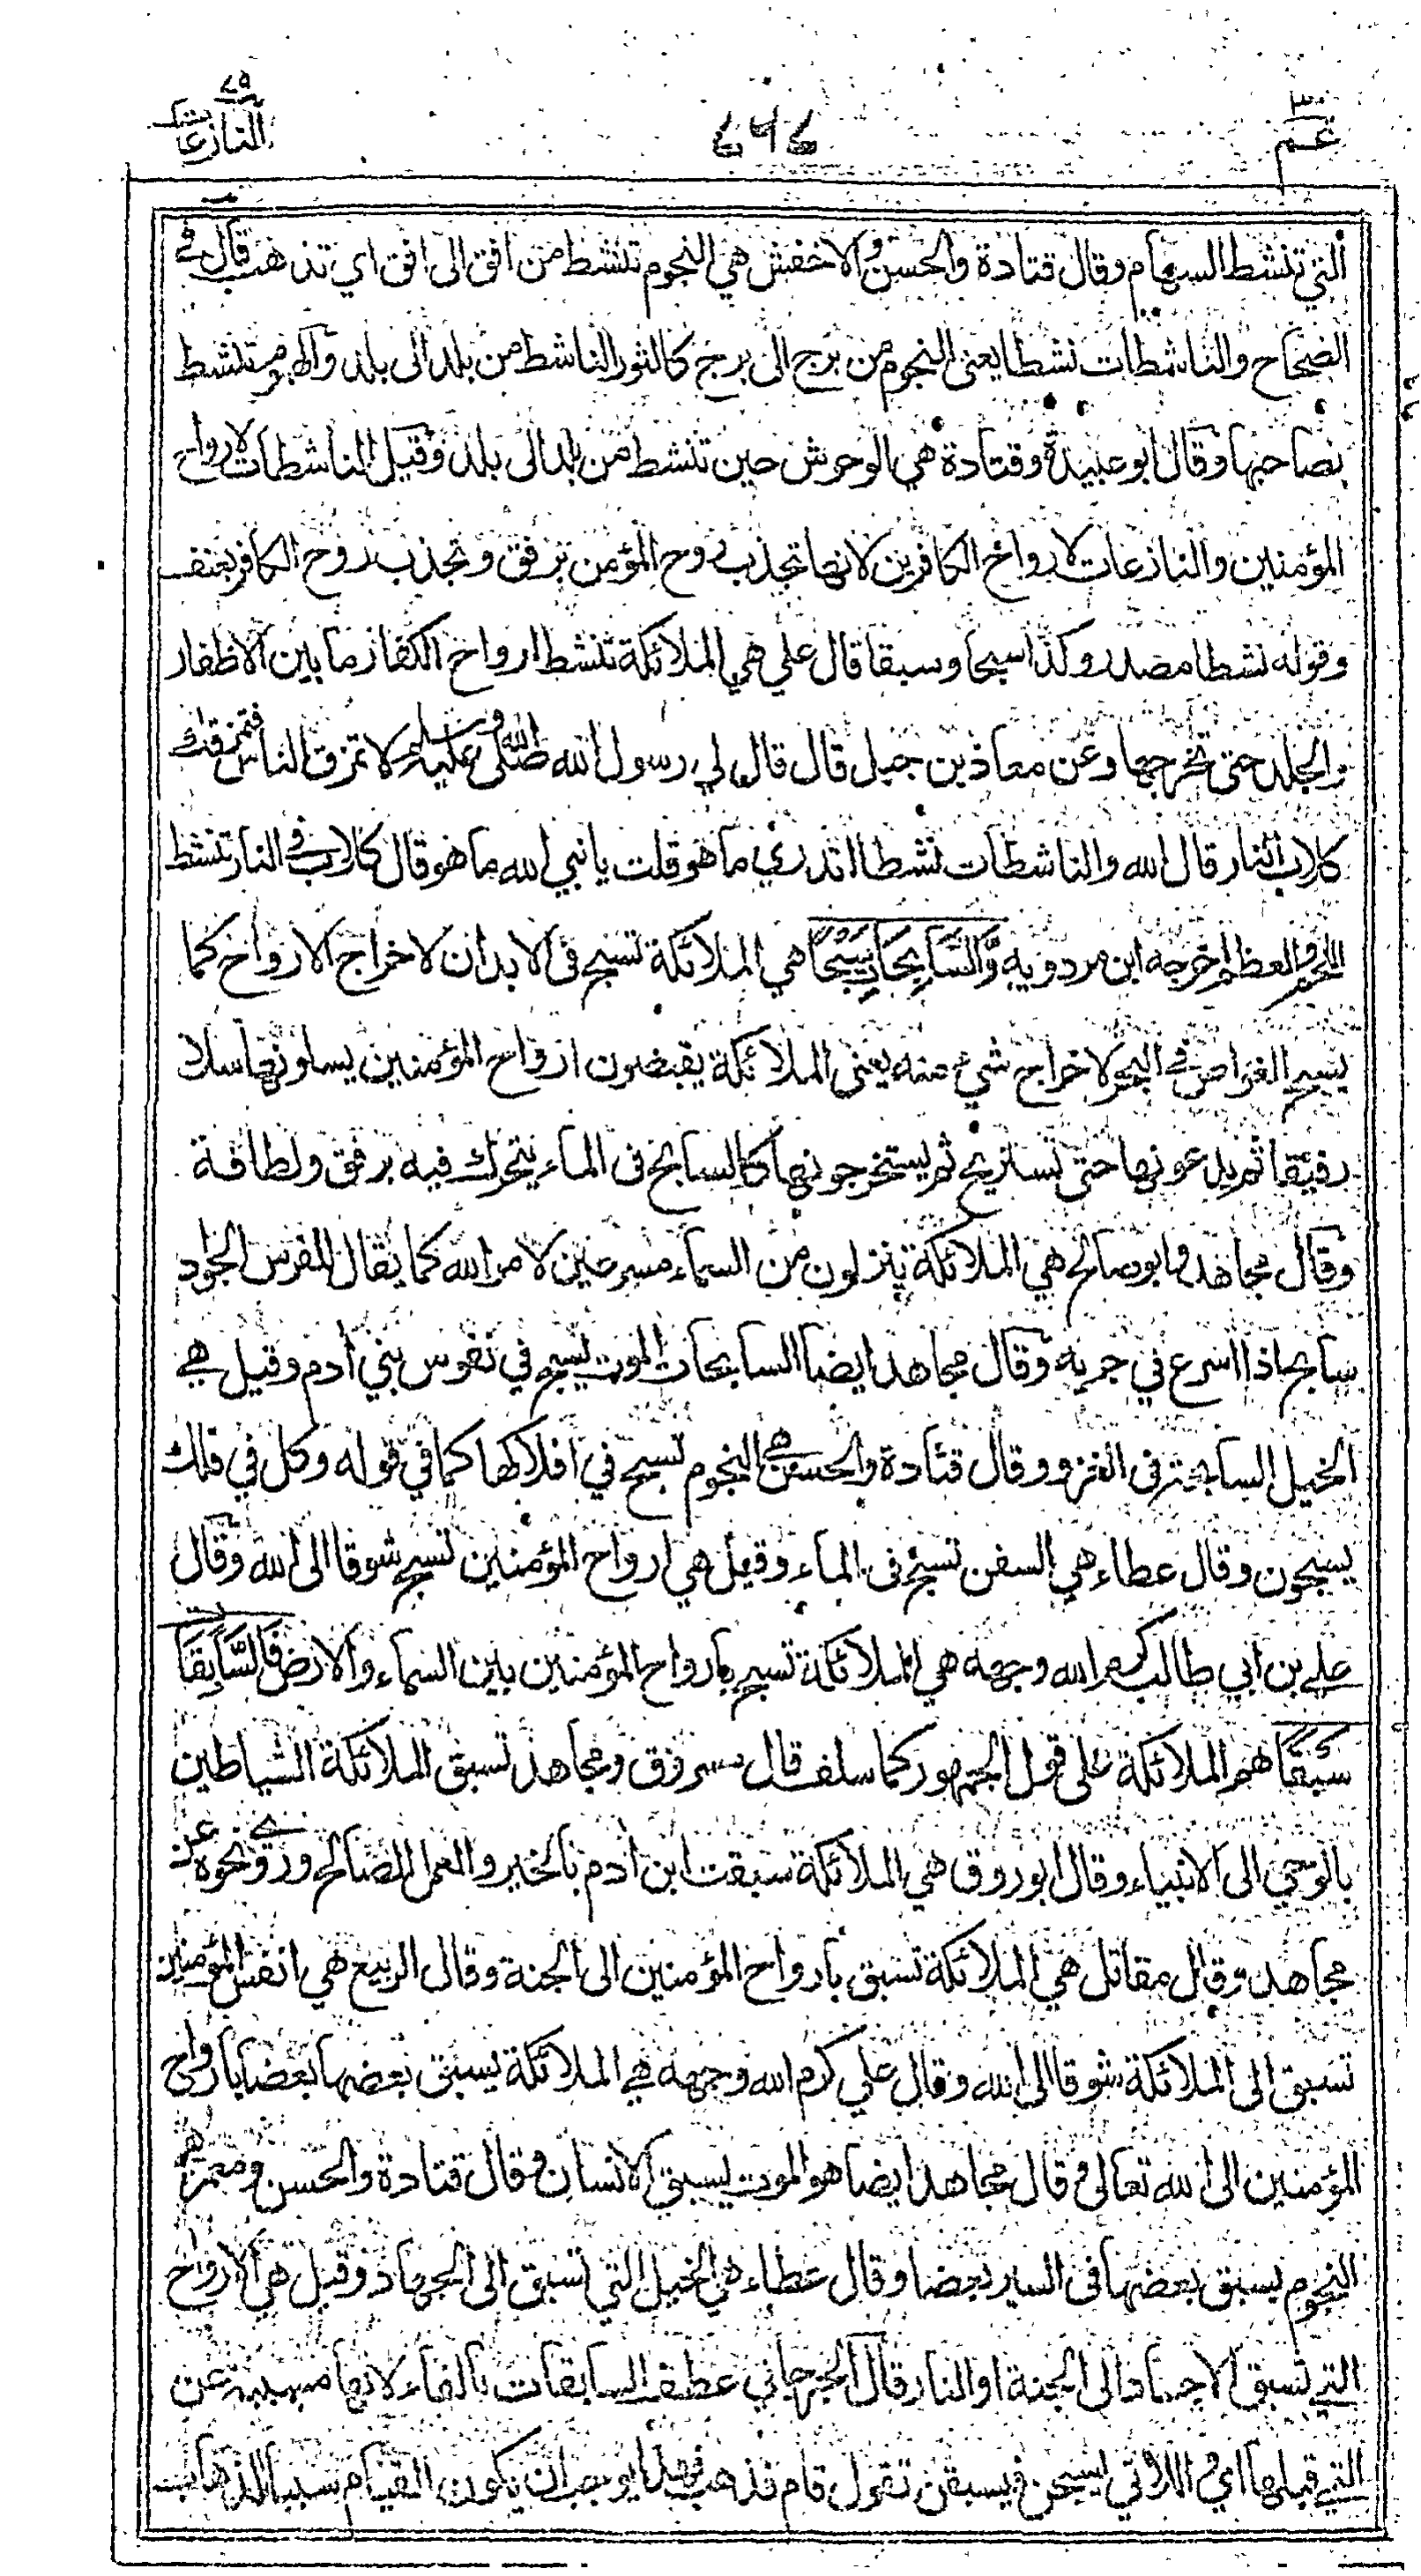 عم ٣٠
٢٤٢
النازعات ٧٩
التي تنشط السهام وقال قتادة والحسن والاخفش هي النجوم تنشط من افق الى افق اي تذهب قال في
الصحاح والناشطات نشطا يعني النجوم من برج الى برج كالثور الناشط من بلد الى بلد والهموم تنشط
بصاحبها وقال ابو عبيدة وقتادة هي الوحوش حين تنشط من بلد الى بلد وقيل الناشطات لارواح
المؤمنين والنازعات لارواح الكافرين لانها تجذب روح المؤمن برفق وتجذب روح الكافر بعنف
وقوله نشطا مصدر وكذا سبحا وسبقا قال علي هي الملائكة تنشط ارواح الكفار ما بين الاظفار
والجلد حتى تخرجها وعن معاذ بن جبل قال قال لي رسول الله صلى الله عليه وسلم لا تمزق الناس فتمزقك
كلاب النار قال الله والناشطات نشطا اتدري ما هو قلت يا نبي الله ما هو قال كلاب في النار تنشط
اللحم والعظم اخرجه ابن مردويه وَّالسَّابِحَاتِ سَبْحًا هي الملائكة تسبح في الابدان لاخراج الارواح كما
يسبح الغواص في البحر لاخراج شيء منه يعني الملائكة يقبضون ارواح المؤمنين يسلونها سلا
رفيقا ثم يدعونها حتى تستريح ثم يستخرجونها كالسابح في الماء يتحرك فيه برفق ولطافة
وقال مجاهد وابو صالح هي الملائكة ينزلون من السماء مسرعين لامر الله كما يقال للفرس الجواد
سابح اذا اسرع في جريه وقال مجاهد ايضا السابحات الموت يسبح في نفوس بني ادم وقيل هي
الخيل السابحة في الغزو وقال قتادة والحسن هي النجوم تسبح في افلاكها كما في قوله وكل في فلك
يسبحون وقال عطاء هي السفن تسبح في الماء وقيل هي ارواح المؤمنين تسبح شوقا الى الله وقال
علي بن ابي طالب كرم الله وجهه هي الملائكة تسبح بارواح المؤمنين بين السماء والارض فَالسَّابِقَاتِ
سَبْقًا هم الملائكة على قول الجمهور كما سلف قال مسروق ومجاهد تسبق الملائكة الشياطين
بالوحي الى الانبياء وقال ابو روق هي الملائكة سبقت ابن ادم بالخير والعمل الصالح وروي نحوه عن
مجاهد وقال مقاتل هي الملائكة تسبق بارواح المؤمنين الى الجنة وقال الربيع هي انفس المؤمنين
تسبق الى الملائكة شوقا الى الله وقال علي كرم الله وجهه هي الملائكة يسبق بعضها بعضا بارواح
المؤمنين الى الله تعالى وقال مجاهد ايضا هو الموت يسبق الانسان وقال قتادة والحسن ومعمر هي
النجوم يسبق بعضها في السير بعضا وقال عطاء هي الخيل التي تسبق الى الجهاد وقيل هي الارواح
التي تسبق الاجساد الى الجنة او النار قال الجرجاني عطف السابقات بالفاء لانها مسببة عن
التي قبلها اي واللاتي يسبحن فيسبقن تقول قام فذهب فهذا يوجب ان يكون القيام سببا للذهاب